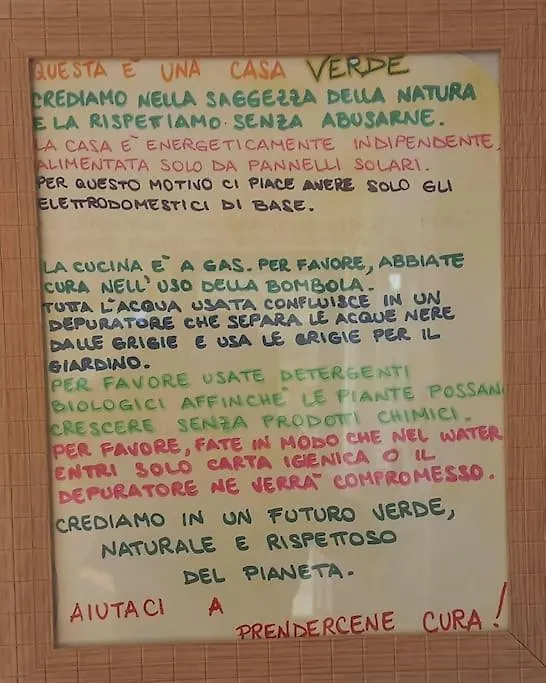 QUESTA E UNA CASA VERDE
CREDIAMO NELLA SAGGEZZA DELLA NATURA
E LA RISPETIAMO SENZA ABUSARNE.
LA CASA E' ENERGETICAMENTE INDIPENDENTE,
ALIMENTATA SOLO DA PANNELLI SOLARI.
PER QUESTO MOTIVO CI PIACE AVERE SOLO GLI
ELETTRODOMESTICI DI BASE.
LA CUCINA E' A GAS. PER FAVORE, ABBIATE
CURA NELL'USO DELLA BOMBOLA.
TUTTA L'ACQUA USATA CONFLUISCE IN UN
DEPURATORE CHE SEPARA LE ACQUE NERE
DALLE GRIGIE E USA LE GRIGIE PER IL
GIARDINO.
PER FAVORE USATE DETERGENTI
BIOLOGICI AFFINCHE' LE PIANTE POSSAN
CRESCERE SENZA PRODOTTI CHIMICI.
PER FAVORE, FATE IN MODO CHE NEL WATER
ENTRI SOLO CARTA IGIENICA O IL
DEPURATORE NE VERRA' COMPROMESSO.
CREDIAMO IN UN FUTURO VERDE,
NATURALE E RISPETTOSO
DEL PIANETA.
AIUTACI A
PRENDERCENE CURA!